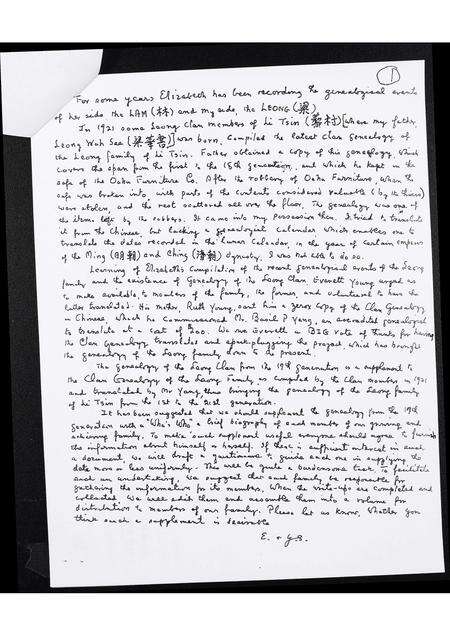 1
For some years Elizabeth has been recording the genealogical events
of her side the LAM (林) and my side, the LEONG (梁).
In 1921 some Leong Clan members of Li Tsin (黎村) [where my father,
Leong Wah See (梁華書)] was born, compiled the latest clan genealogy of
the Leong family of Li Tsin. Father obtained a copy of his genealogy, which
covers the span from the first to the 18th generation, and which he kept in the
safe of the Oahu Furniture Co. After the robbery of Oahu Furniture, when the
safe was broken into with parts of the contents considered valuable (by the thieves)
were stolen, and the rest scattered all over the floor, The genealogy was one of
the items left by the robbers. It came into my possession then. I tried to translate
it from the Chinese, but lacking a genealogical calendar which enables one to
translate the dates recorded in the Lunar Calendar, in the year of certain emperors
of the Ming (明朝) and Ching (清朝) dynasty, I was not able to do so.
Learning of Elizabeth's compilation of the recent genealogical events of the Leong
family and the existence of Genealogy of the Leong Clan Everett Young urged us
to make available, to members of the family, the former and volunteered to have the
latter translated. His mother, Ruth Young, sent him a xerox copy of the Clan Genealogy
in Chinese, which he commissioned Mr. Basil P Yang, an accredited genealogist
to translate at a cost of $200. We owe Everett a BIG vote of thanks for having
the Clan Genealogy translated and spark-plugging the project which has brought
the genealogy of the Leong family down to the present.
The genealogy of the Leong Clan from the 19th generation is a supplement to
the Clan Genealogy of the Leong Family as compiled by the Clan members in 1921
and translated by Mr Yang, thus bringing the genealogy of the Leong family
of Li Tsin from the 1st to the 21st generation.
It has been suggested that we should supplement the genealogy from the 19th
Generation with a "Who's Who" a brief biography of each member of our growing and
achieving family. To make such supplement useful everyone should agree to furnish
the information about himself or herself. If there is sufficient interest in such
a document, we will draft a questionaire to guide each one in supplying the
data more or less uniformly. This will be quite a burdensome task. To facilitate
such an undertaking, we suggest that each family be responsible for
gathering the information for its members. When the write-ups are completed and
collected we will edit them and assemble them into a volume for
distribution to members of our family. Please let us know, whether you
think such a supplement is desirable
E. +